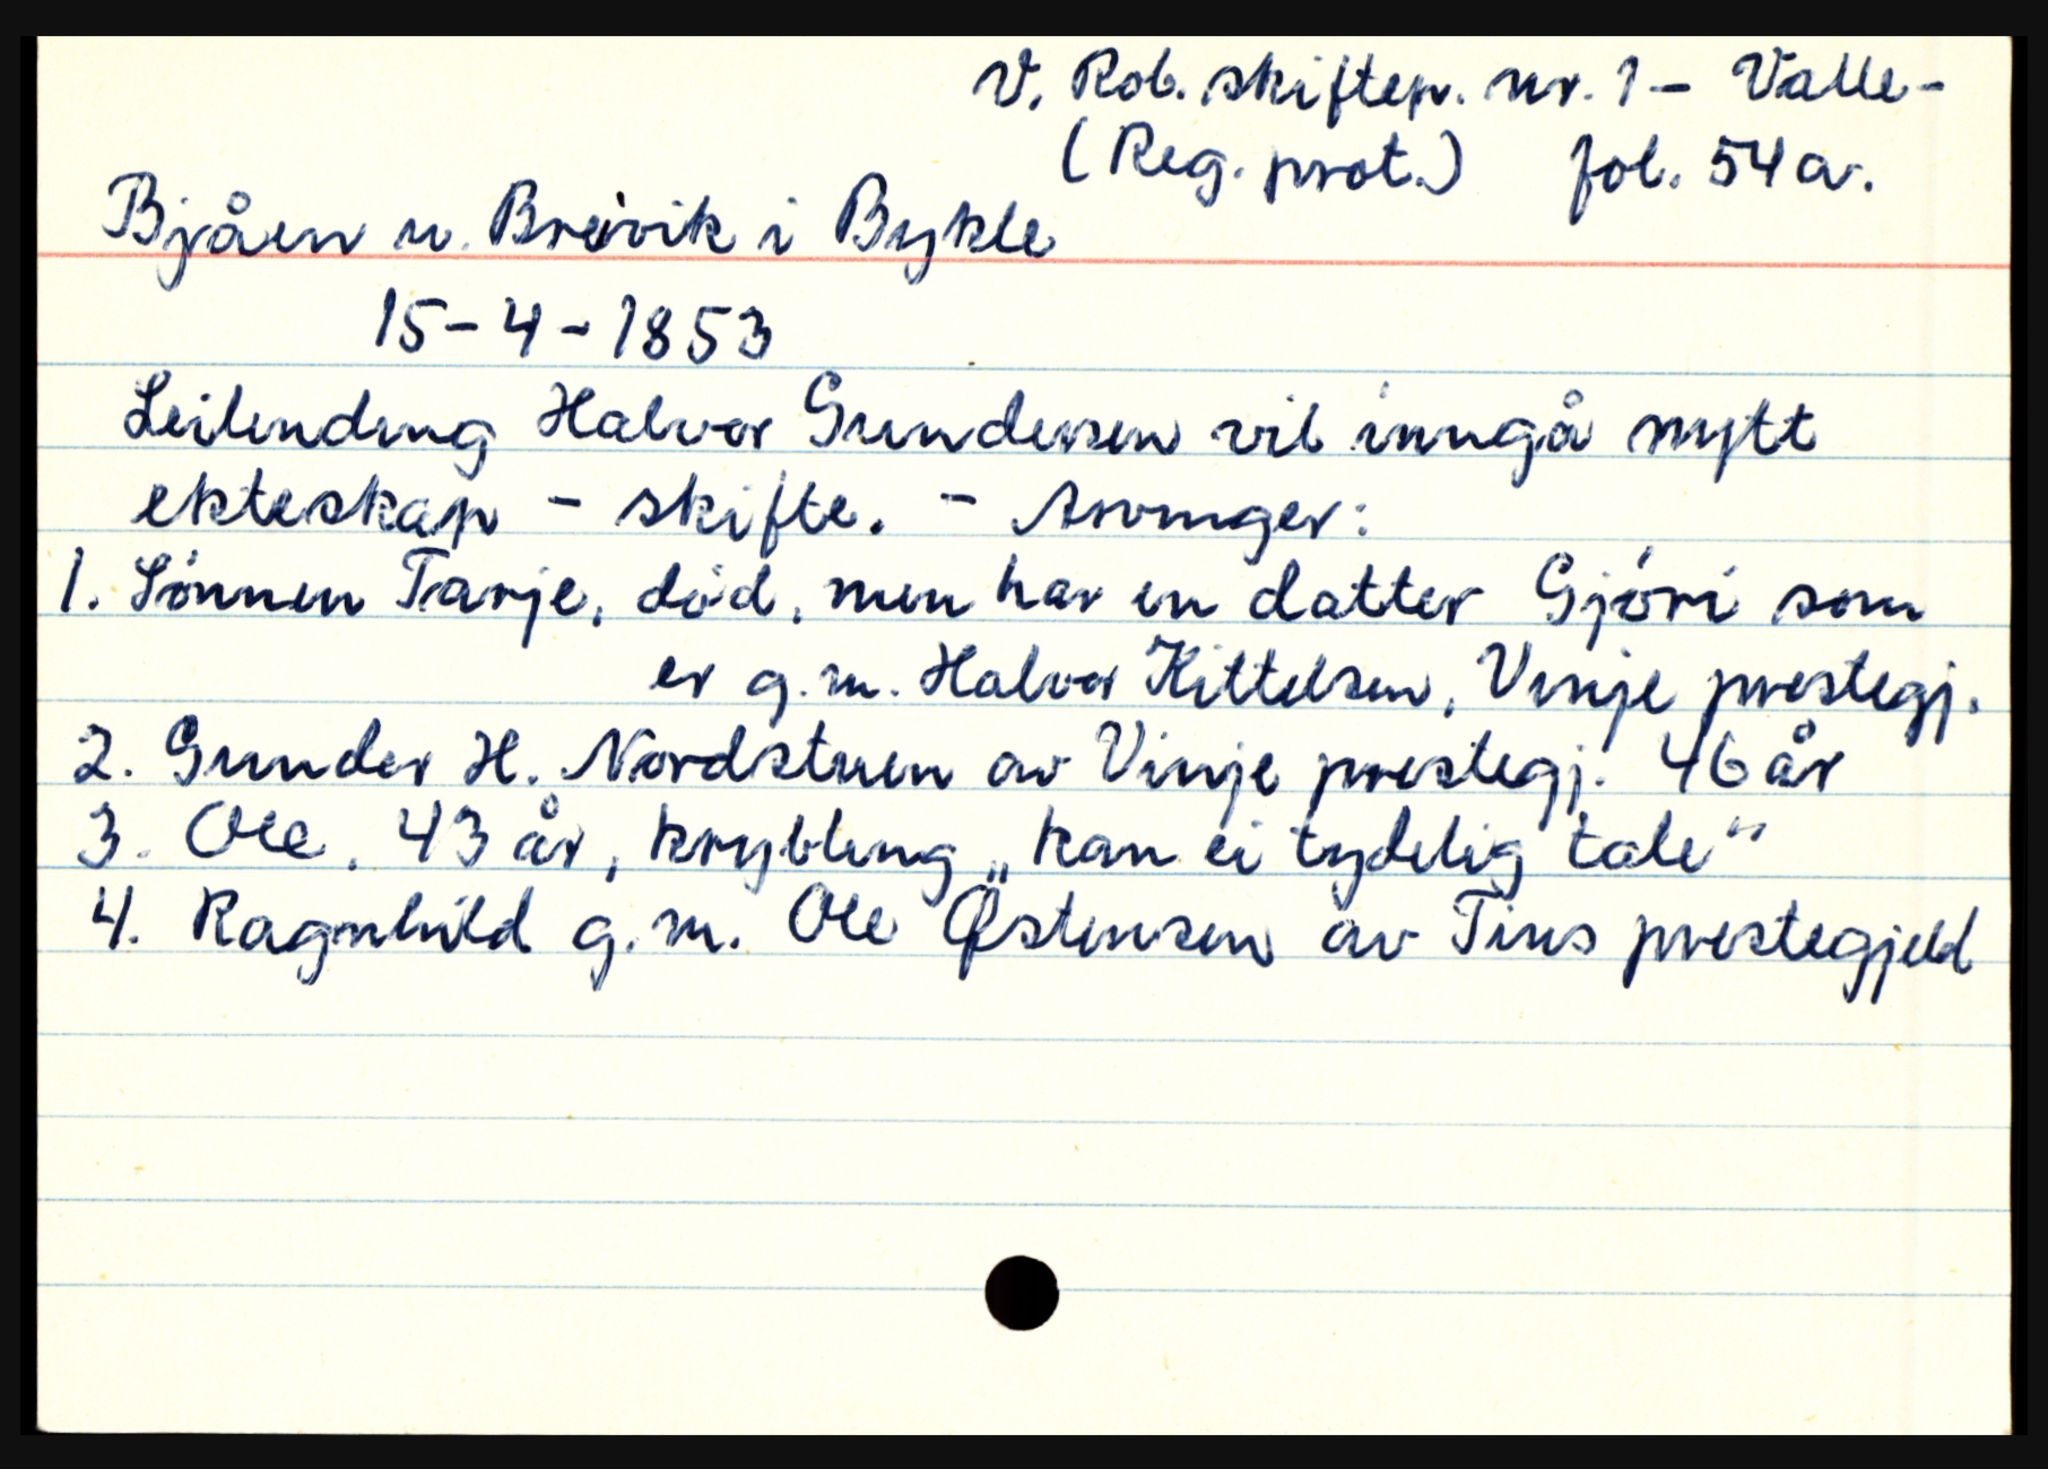 V. Rob. skiftep. nr. 1 - Valle -
(Reg. prot.) fol. 54a.
Bjåen u. Breivik i Bykle
15-4-1853
Leilending Halvor Gundersen vil inngå nytt
ekteskap - skifte. - Arvinger:
1. Sönnen Tarje, död, men har en datter Gjöri som
er g.m. Halvor Kittelsen, Vinje prestegj.
2. Gunder H. Nordstuen av Vinje prestegj. 46 år
3. Ole, 43 år, krybling „kan ei tydelig tale"
4. Ragnhild g.m. Ole Østensen av Tins prestegjeld